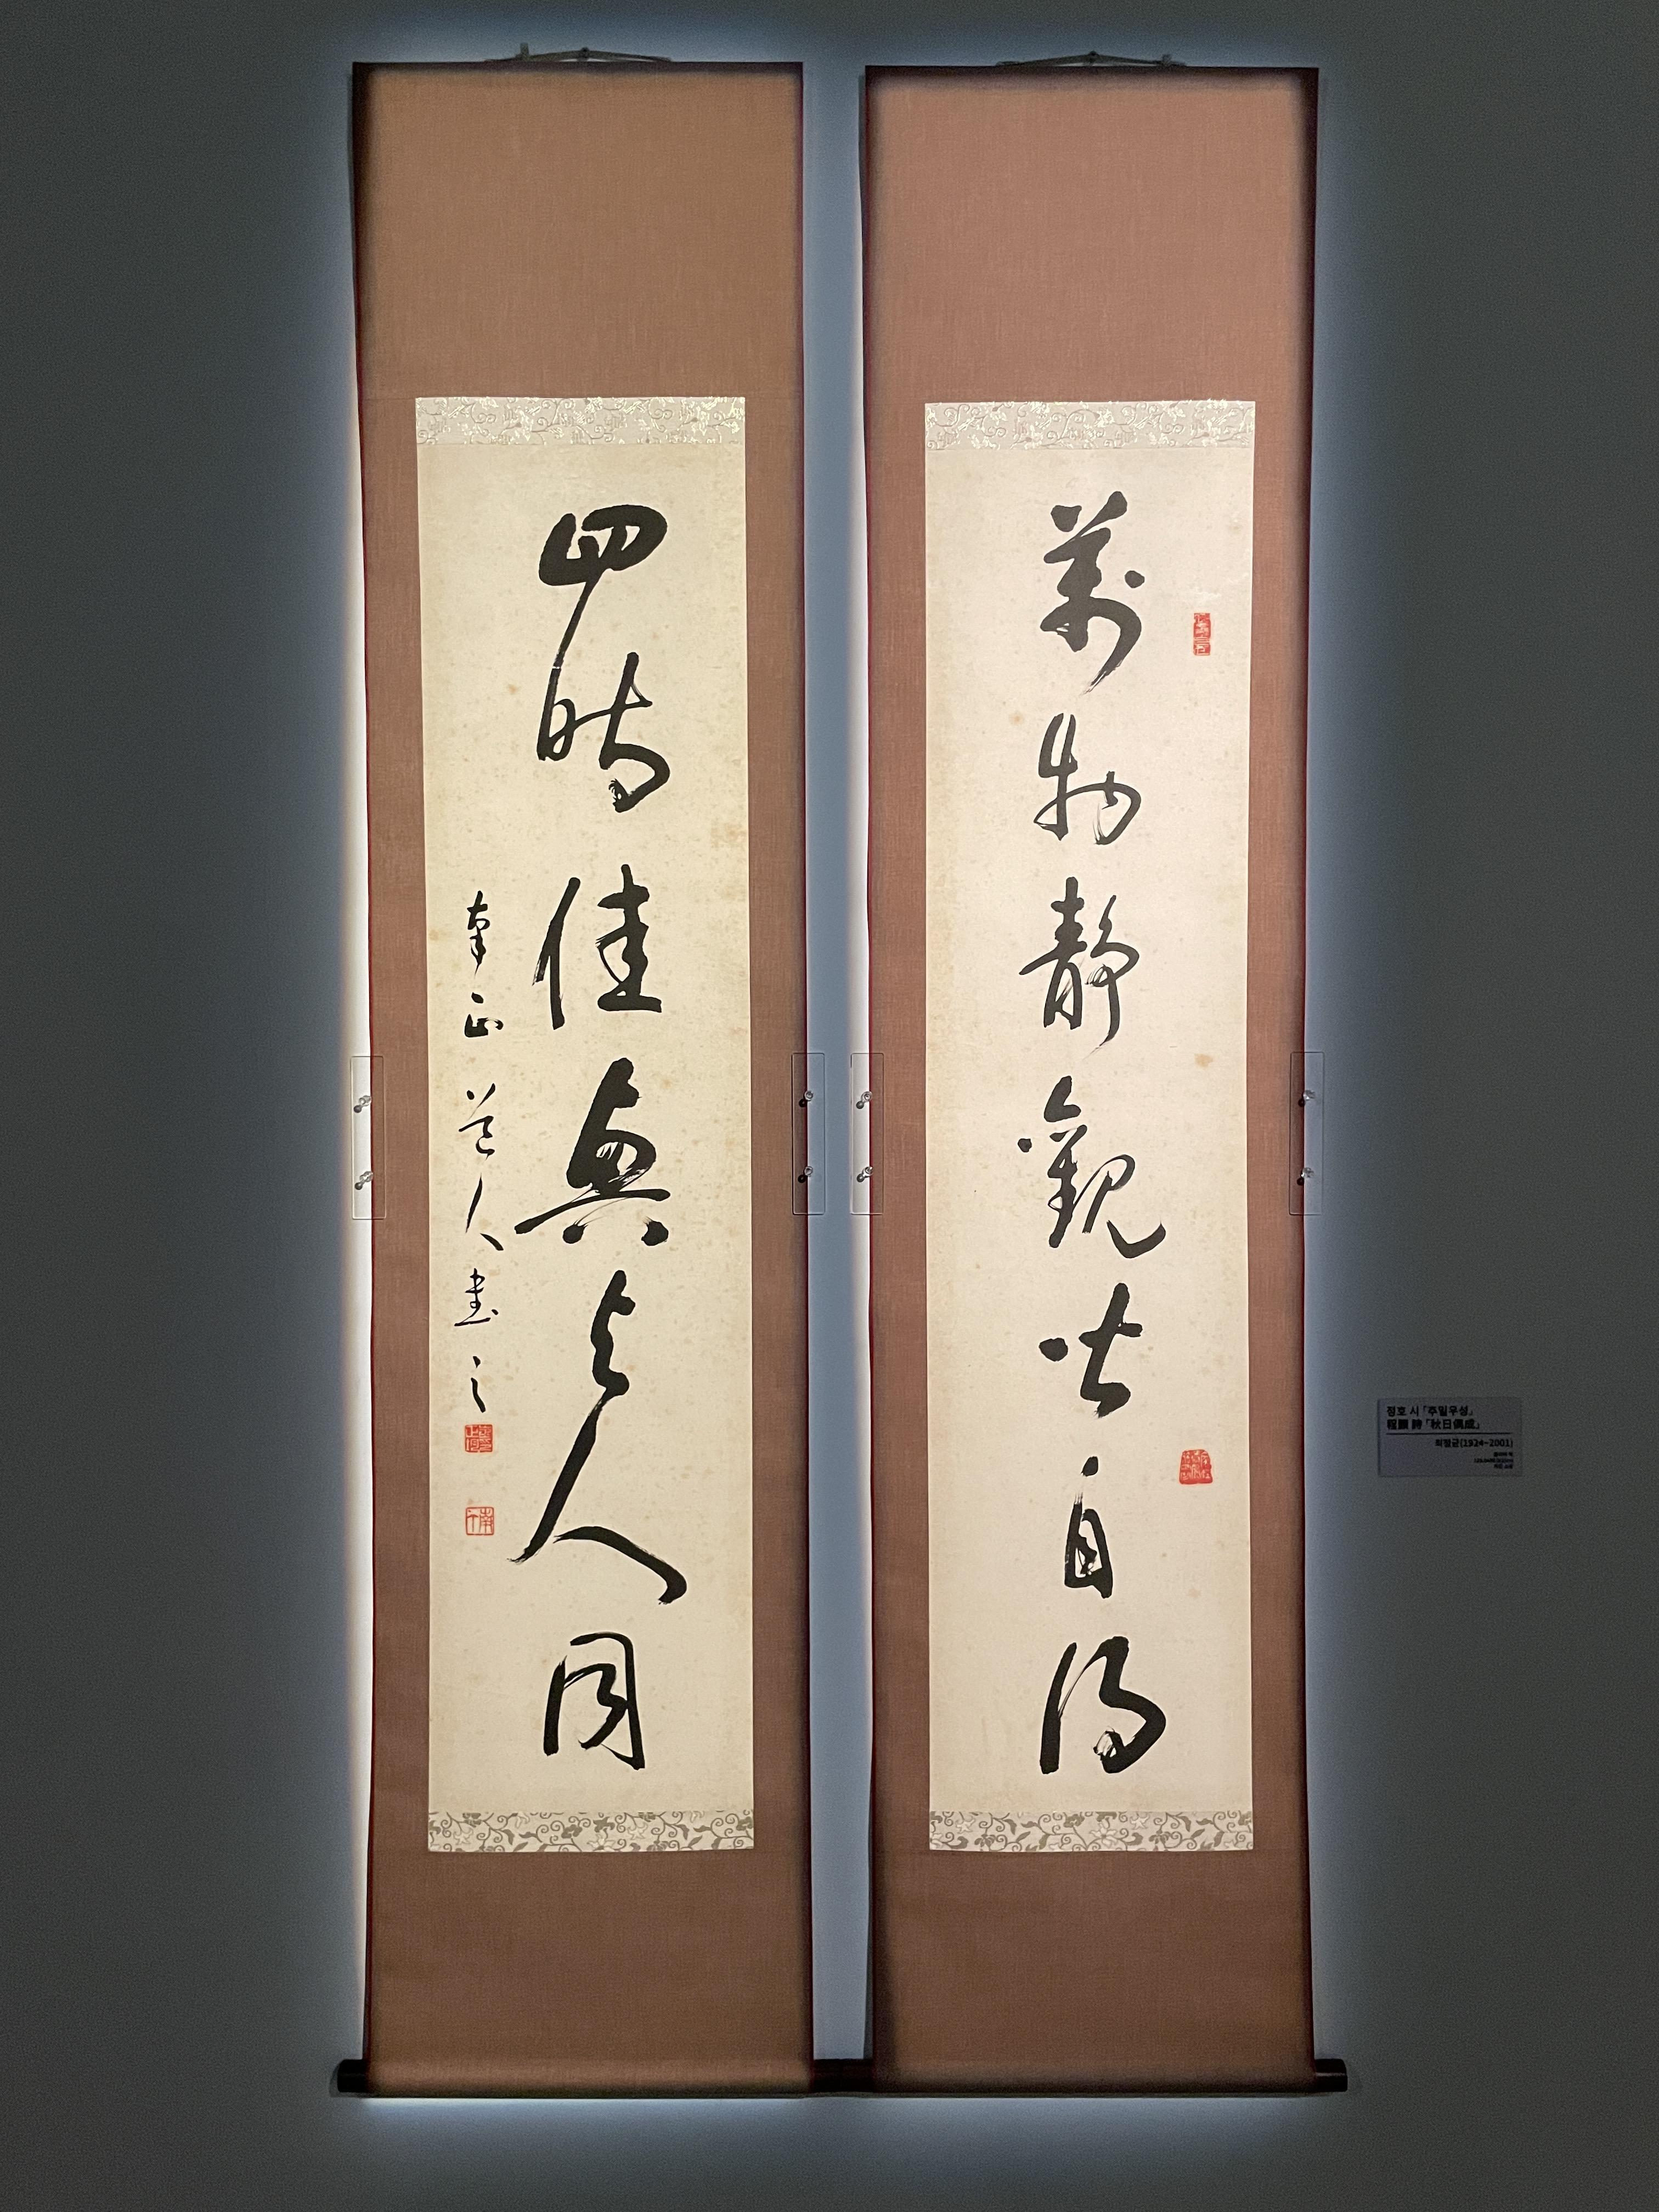 萬物靜觀皆自得
四時佳興與人同
南正道人書之
정호 시「추일우성」
程顥 詩「秋日偶成」
최정균(1924~2001)